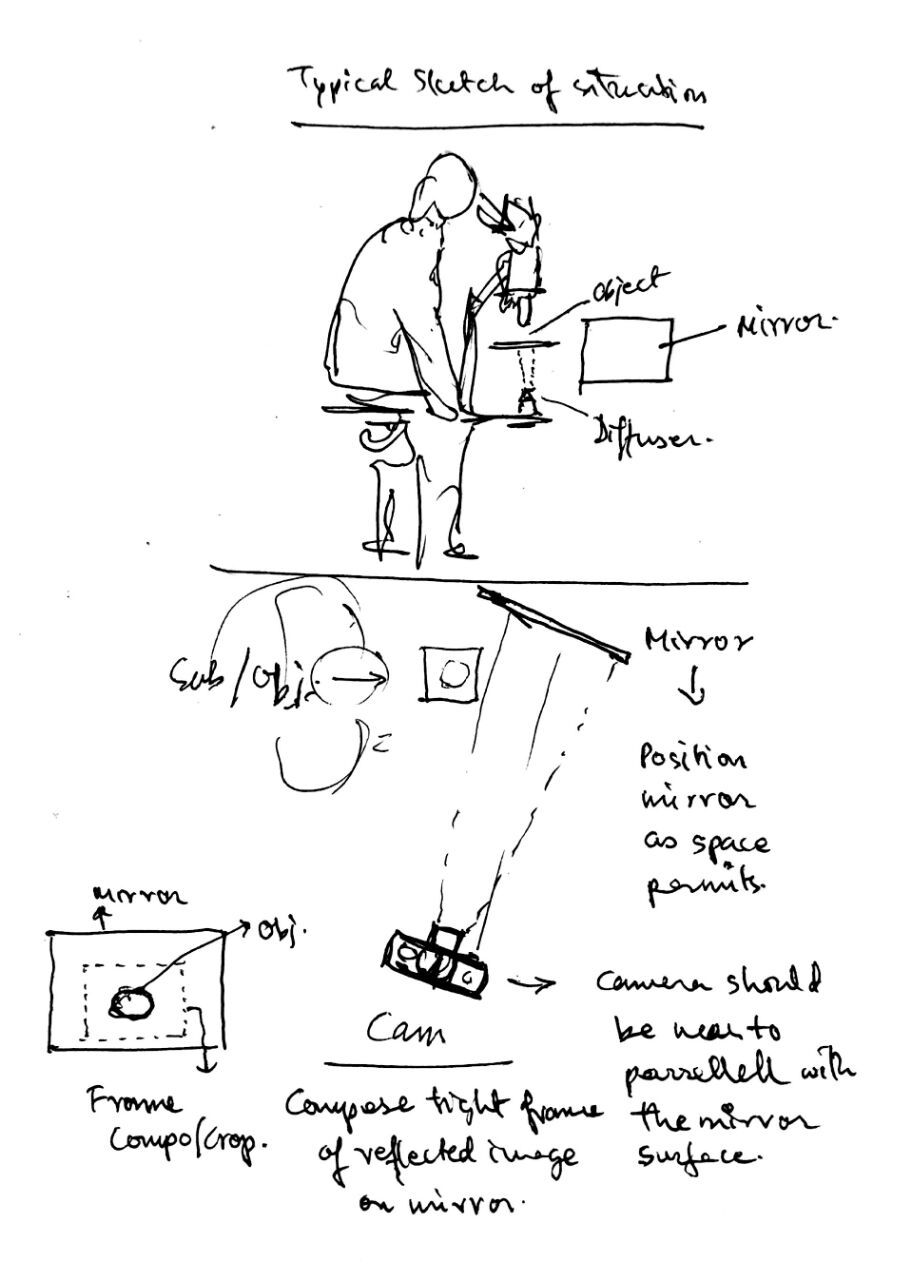 Typical Sketch of situation
object
Mirror.
Diffuser.
Sub/Obj.
Mirror
Position
mirror
as space
permits.
Mirror
Obj.
Frame
Compo/Crop.
Cam
Compose tight frame
of reflected image
on mirror.
Camera should
be near to
parrellell with
the mirror
surface.